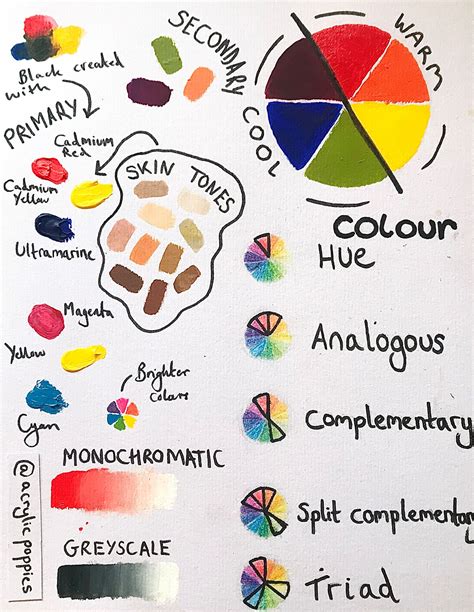 Black created
with
PRIMARY
SECONDARY
WARM
COOL
Cadmium
Red
Cadmium
Yellow
Ultramarine
SKIN TONES
COLOUR
Hue
Analogous
Complementary
Split complementary
Triad
Magenta
Yellow
Cyan
Brighter
Colors
MONOCHROMATIC
GREYSCALE
@acrylicpoppies